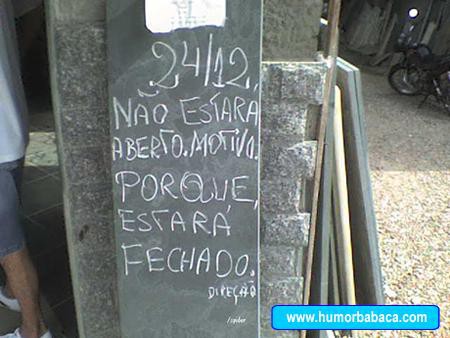 24/12,
NÃO ESTARÁ
ABERTO. MOTIVO.
PORQUE,
ESTARÁ
FECHADO.
DIREÇÃO
/spider
www.humorbabaca.com